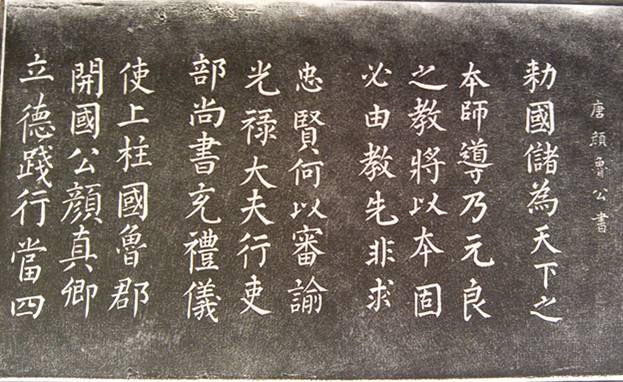 唐顔魯公書
勑國儲為天下之
本師導乃元良
之教將以本固
必由教先非求
忠賢何以審諭
光祿大夫行吏
部尚書充禮儀
使上柱國魯郡
開國公顔真卿
立德踐行當四